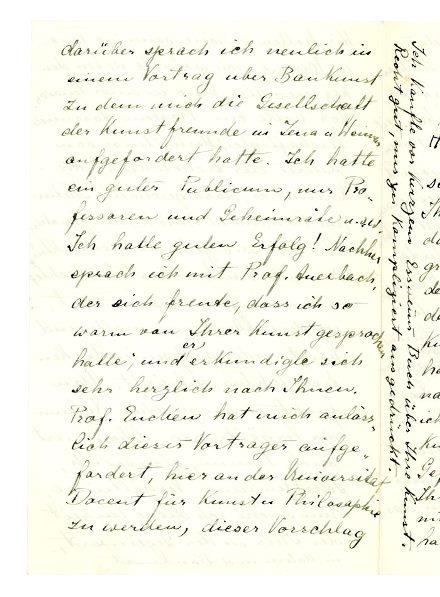 darüber sprach ich neulich in
einem Vortrag über Baukunst
zu dem mich die Gesellschaft
der Kunstfreunde in Jena u Weimar
aufgefordert hatte. Ich hatte
ein gutes Publicum, nur Pro-
fessoren und Geheimräte u.s.w.
Ich hatte guten Erfolg! Nachher
sprach ich mit Prof. Auerbach,
der sich freute, dass ich so
warm von Ihrer Kunst gesprochen
hatte, und er erkundigte sich
sehr herzlich nach Ihnen.
Prof. Eucken hat mich anläss-
lich dieses Vortrages aufge-
fordert, hier an der Universität
Docent für Kunst u Philosophie
zu werden, dieser Vorschlag
Ich kaufte vor kurzem Ihr Buch über Ihre Kunst.
Recht gut, nur zu kompliziert ausgedrückt.